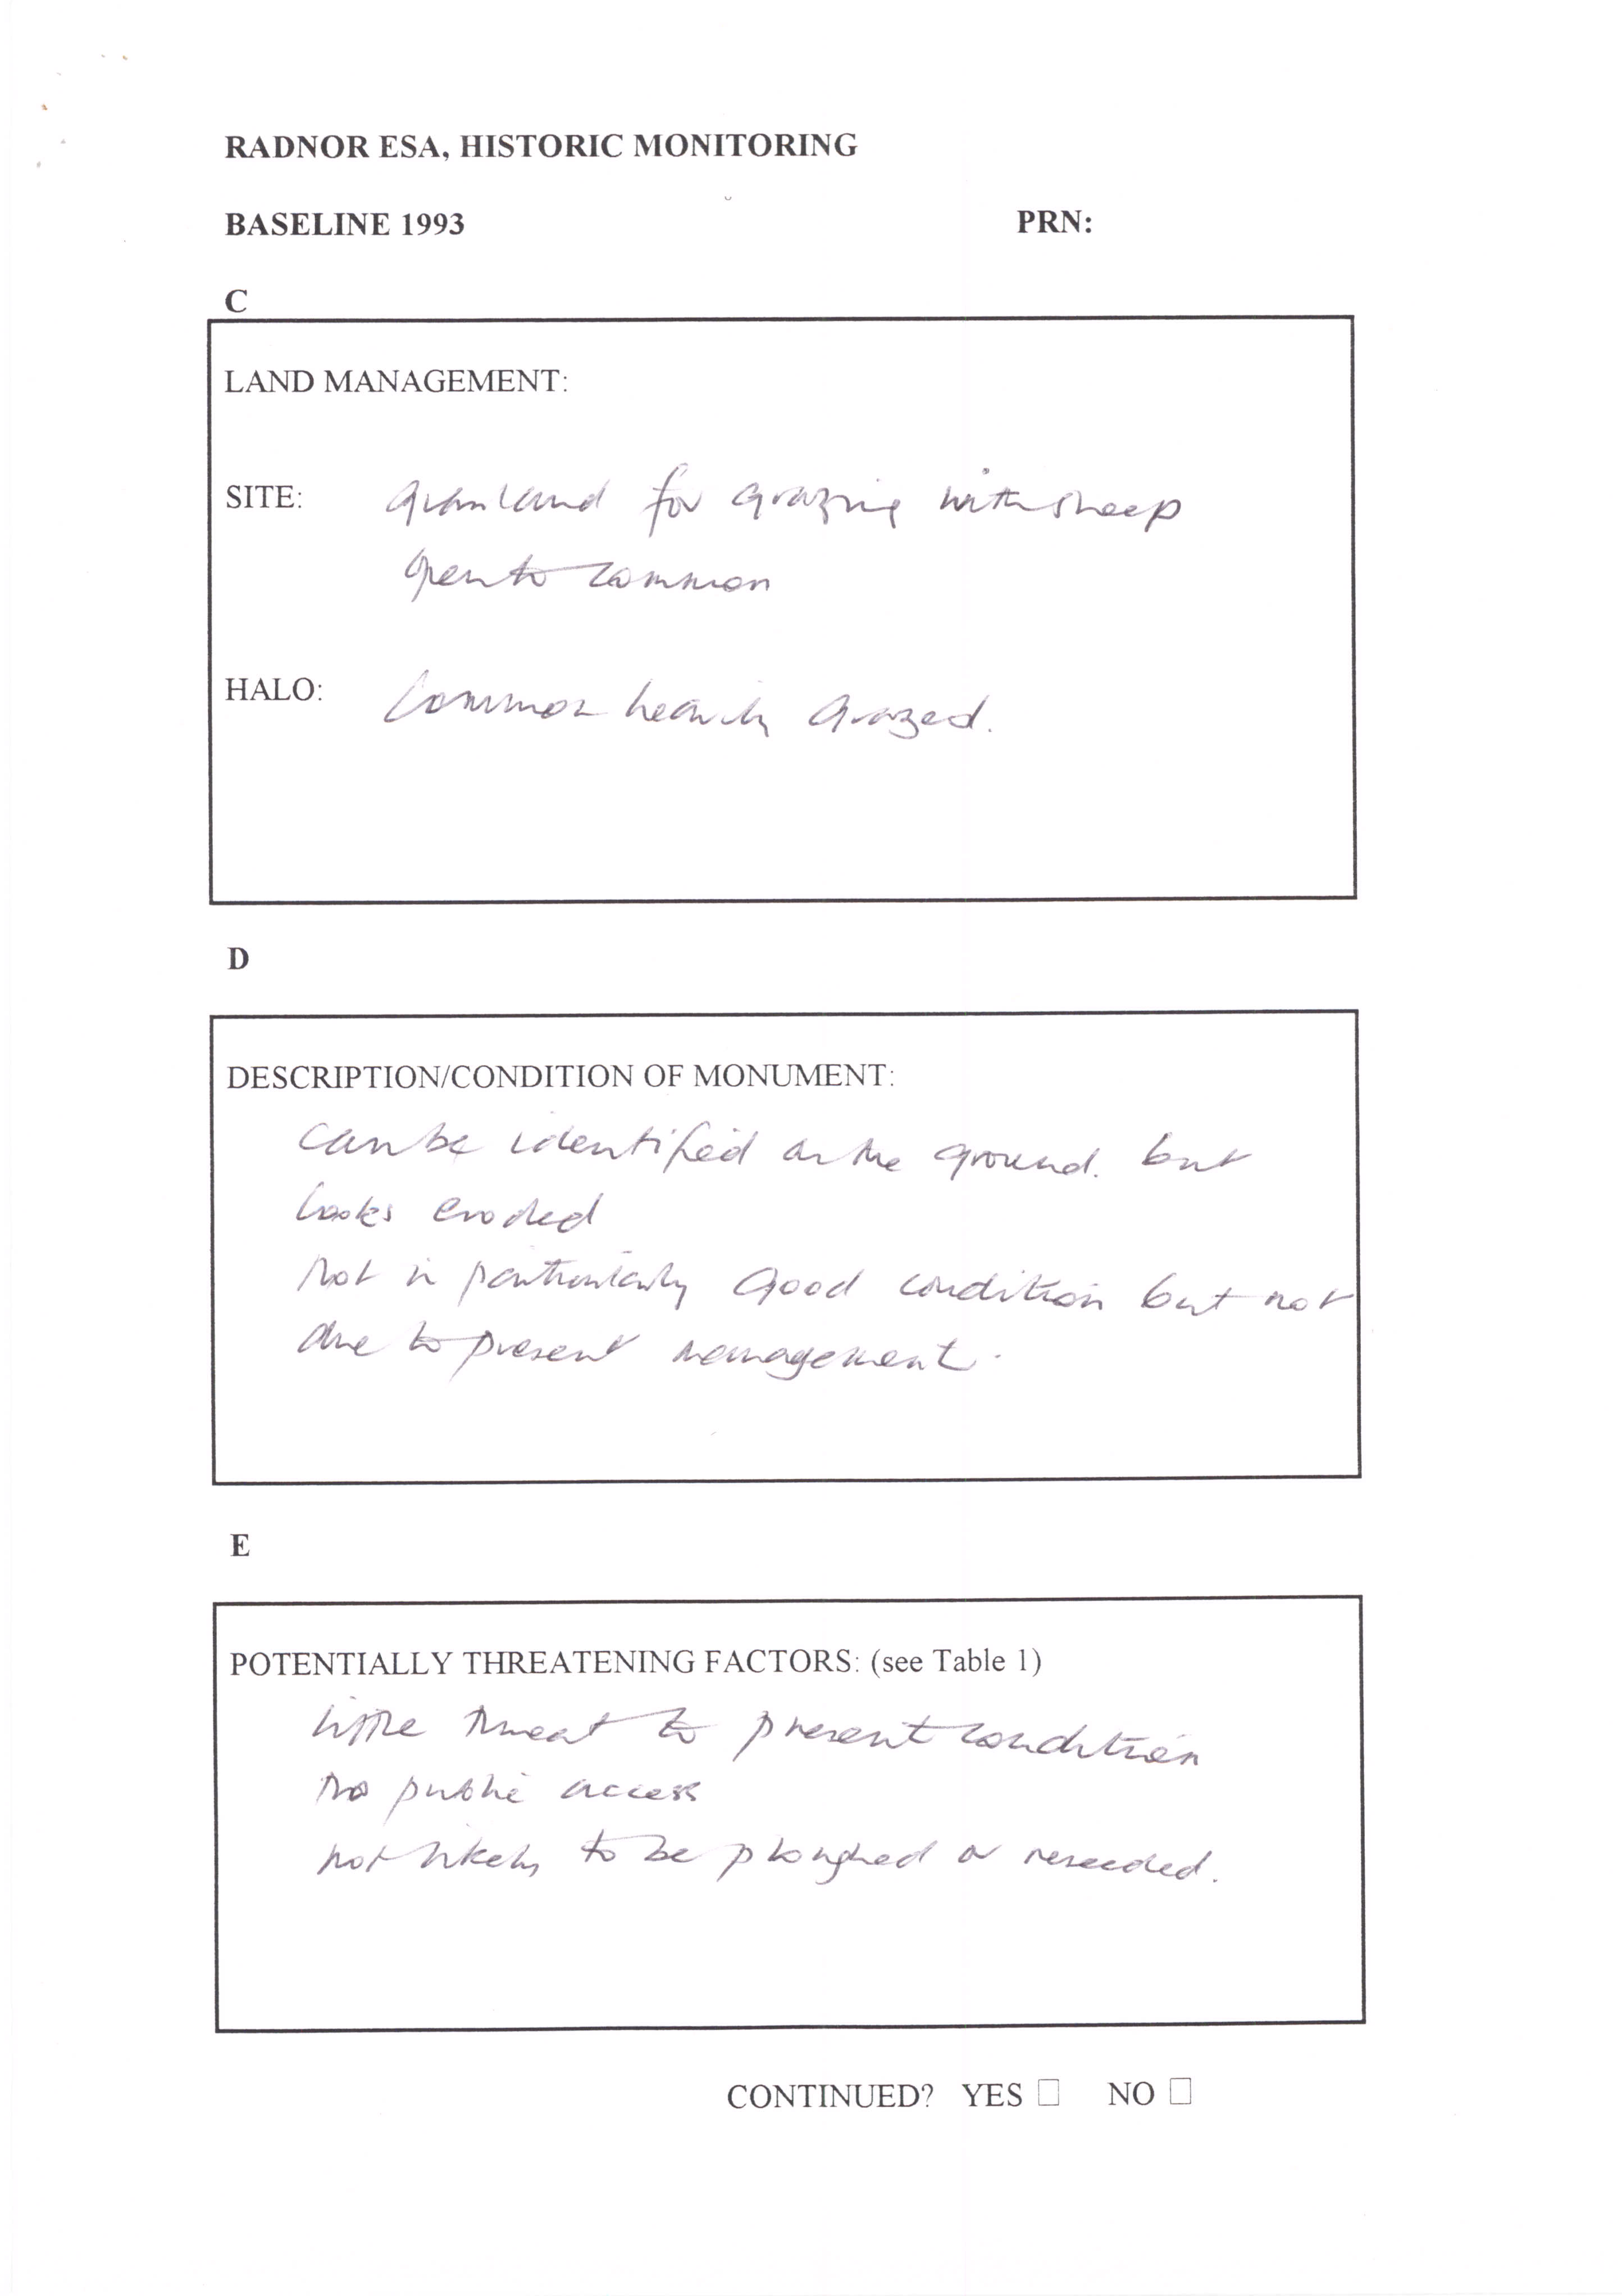 RADNOR ESA, HISTORIC MONITORING
BASELINE 1993 PRN:
C
LAND MANAGEMENT:
SITE: Grassland for grazing with sheep
Open to common
HALO: Common heavily grazed.
D
DESCRIPTION/CONDITION OF MONUMENT:
Can be identified on the ground. but
looks eroded
Not in particularly good condition but not
due to present management.
E
POTENTIALLY THREATENING FACTORS: (see Table 1)
little threat to present condition
No public access
not likely to be ploughed or reseeded.
CONTINUED? YES ☐ NO ☐